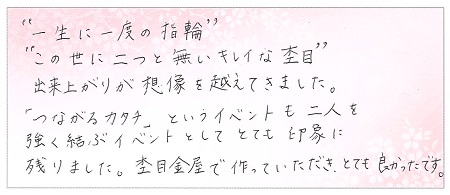 “一生に一度の指輪”
“この世に二つと無いキレイな杢目”
出来上がりが想像を越えてきました。
「つながるカタチ」というイベントも二人を
強く結ぶイベントとしてとても印象に
残りました。杢目金屋で作っていただき、とても良かったです。